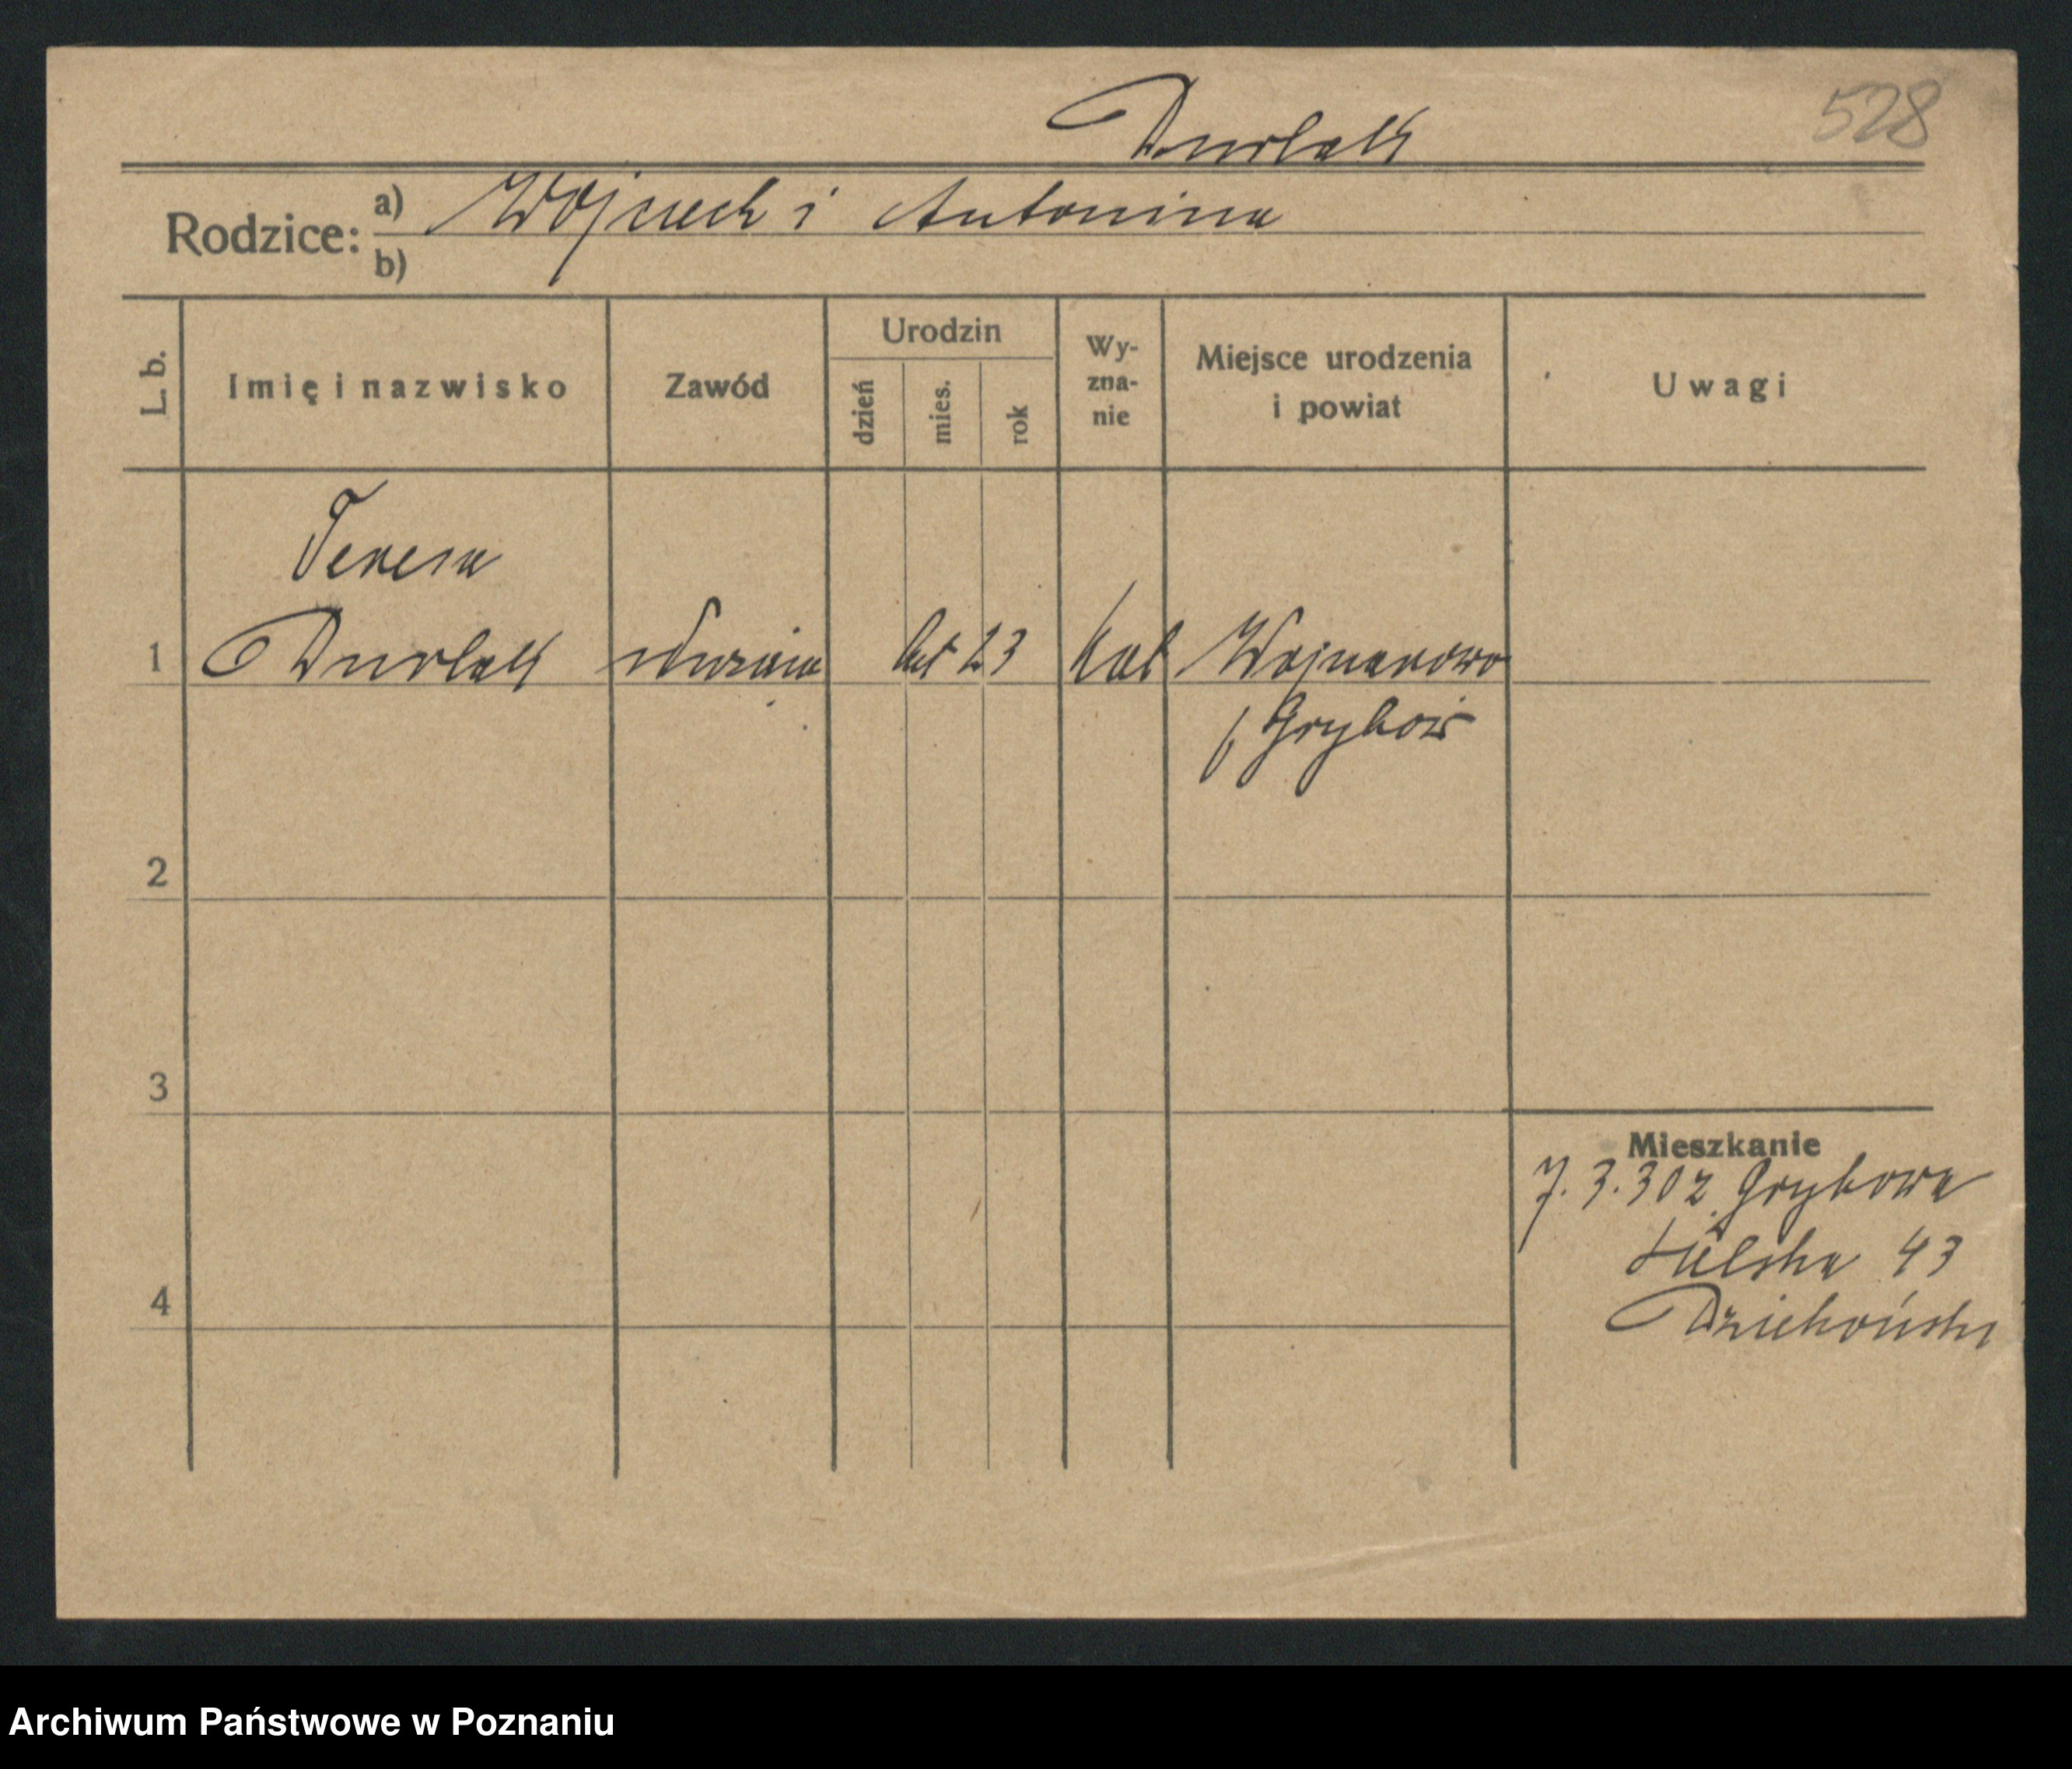 528
Durlak
Rodzice: a) Wojciech i Antonina
b)
L. b. Imię i nazwisko Zawód Urodzin dzień mies. rok Wy- zna- nie Miejsce urodzenia i powiat Uwagi
Teresa
1 Durlak służąca lat 23 kat Wojnarowo
p Grybów
2
3
Mieszkanie
7.3.30 z Grybowa
43
4 Dziekoński
Archiwum Państwowe w Poznaniu